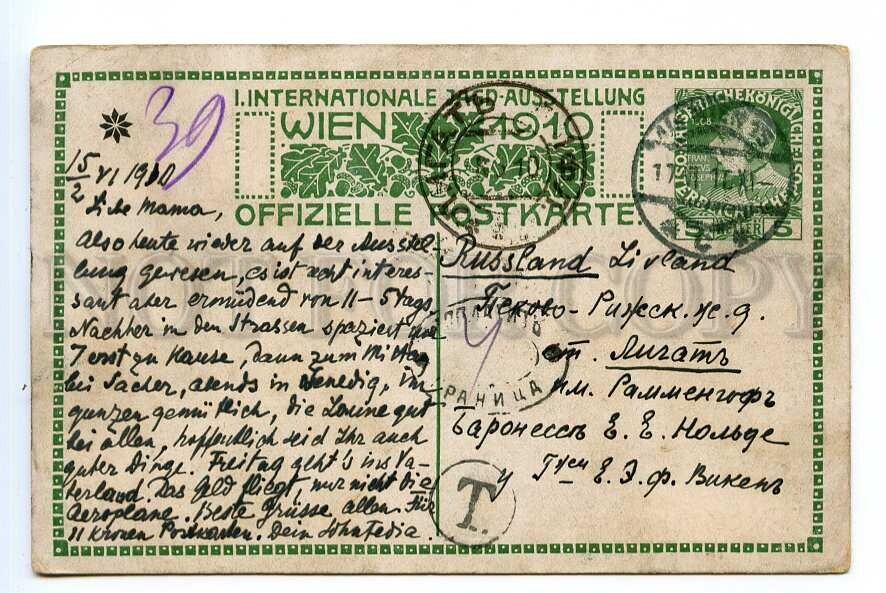 I. INTERNATIONALE JAGD-AUSSTELLUNG
WIEN 1910
OFFIZIELLE POSTKARTE
39
15/2 VI 1910
Liebe Mama,
Also heute wieder auf der Ausstel-
lung gewesen, es ist echt interes-
sant aber ermüdend von 11-5 tags
Nachher in den Strassen spaziert und
7 erst zu Hause, dann zum Mittag
bei Sacher, abends in Venedig, im
ganzen gemütlich, die Laune gut
bei allen, hoffentlich seid Ihr auch
guter Dinge. Freitag geht's ins Va-
terland. Das Geld fliegt, nur nicht die
Aeroplane. Beste Grüsse allen. Für
11 Kronen Postkarten. Dein Sohn Fedia.
Russland Livland
Псково-Рижск. ж. д.
ст. Лигатъ
им. Рамменгофъ
Баронессѣ Е. Е. Нольде
у Е. Э. ф. Викенъ
T.
ГРАНИЦА
5 5
NOT FOR COPY